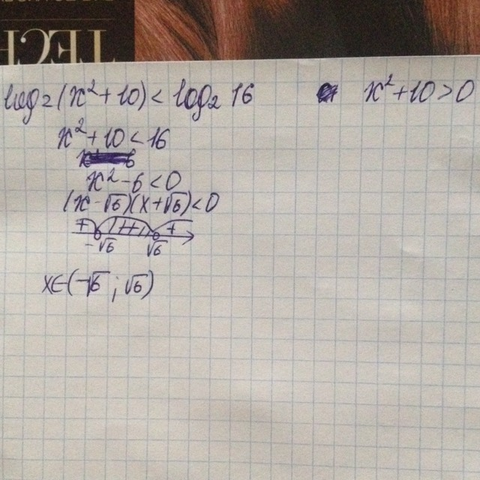 TECH
log₂(x²+10) < log₂ 16
x²+10 > 0
x²+10 < 16
x²-6 < 0
(x-√6)(x+√6) < 0
+ +
-√6 √6
x∈(-√6 ; √6)